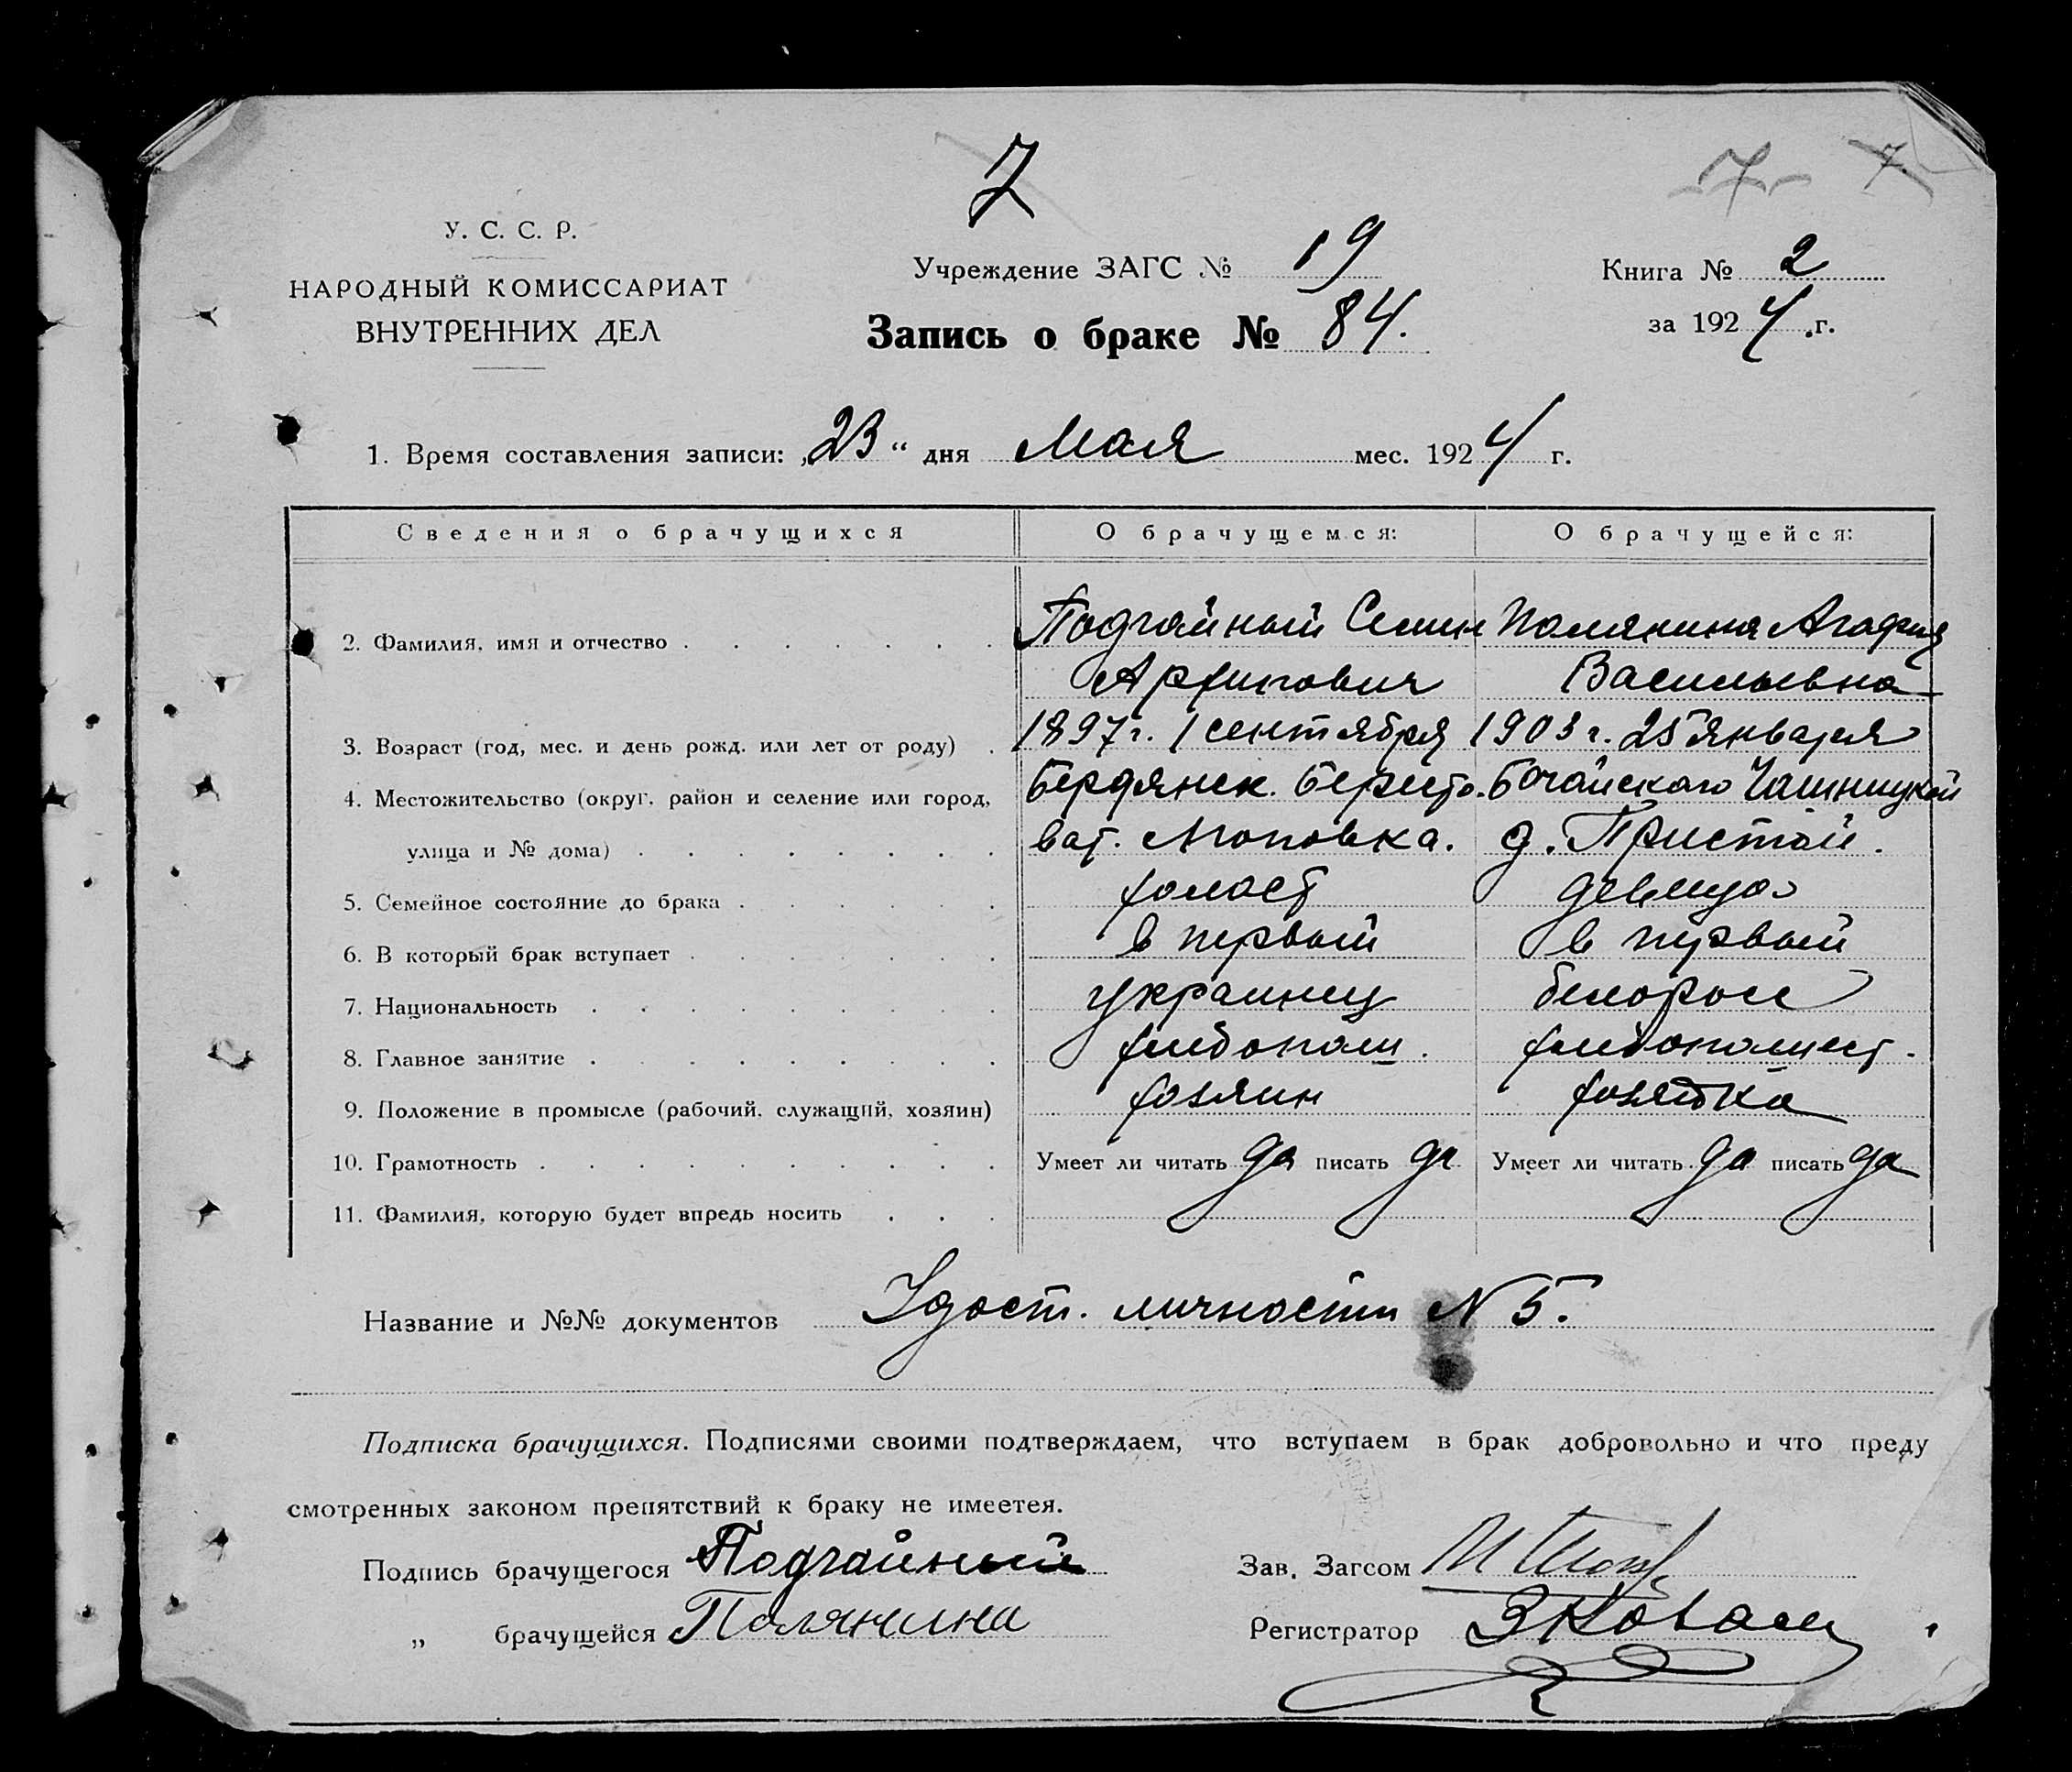 7
7
7
У. С. С. Р.
НАРОДНЫЙ КОМИССАРИАТ
ВНУТРЕННИХ ДЕЛ
Учреждение ЗАГС № 19
Запись о браке № 84.
Книга № 2
за 1924 г.
1. Время составления записи: „23“ дня Мая мес. 1924 г.
Сведения о брачущихся О брачущемся: О брачущейся:
2. Фамилия, имя и отчество Подгайный Семен Полянина Агафия
Архипович Васильевна
3. Возраст (год, мес. и день рожд. или лет от роду) 1897 г. 1 сентября 1903 г. 25 января
4. Местожительство (округ, район и селение или город, Бердянск. Берестов. Чашницкой
улица и № дома) ват. д. Пристой.
5. Семейное состояние до брака холост девица
6. В который брак вступает в первый в первый
7. Национальность украинец белоросс
8. Главное занятие хлебопаш. хлебопашест.
9. Положение в промысле (рабочий, служащий, хозяин) хозяин хозяйка
10. Грамотность Умеет ли читать да писать да Умеет ли читать да писать да
11. Фамилия, которую будет впредь носить
Название и №№ документов Удост. личности N 5.
Подписка брачущихся. Подписями своими подтверждаем, что вступаем в брак добровольно и что преду
смотренных законом препятствий к браку не имеетея.
Подпись брачущегося Подгайный
„ брачущейся Полянина
Зав. Загсом
Регистратор